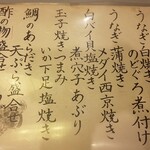 うなぎ白焼き
のどぐろ煮付け
うなぎ蒲焼き
メダイ西京焼き
白バイ貝塩焼き
煮穴子あぶり
玉子焼きつまみ
いか下足塩焼き
鯛のあらだき
天ぷら盛合せ
酢の物盛合せ